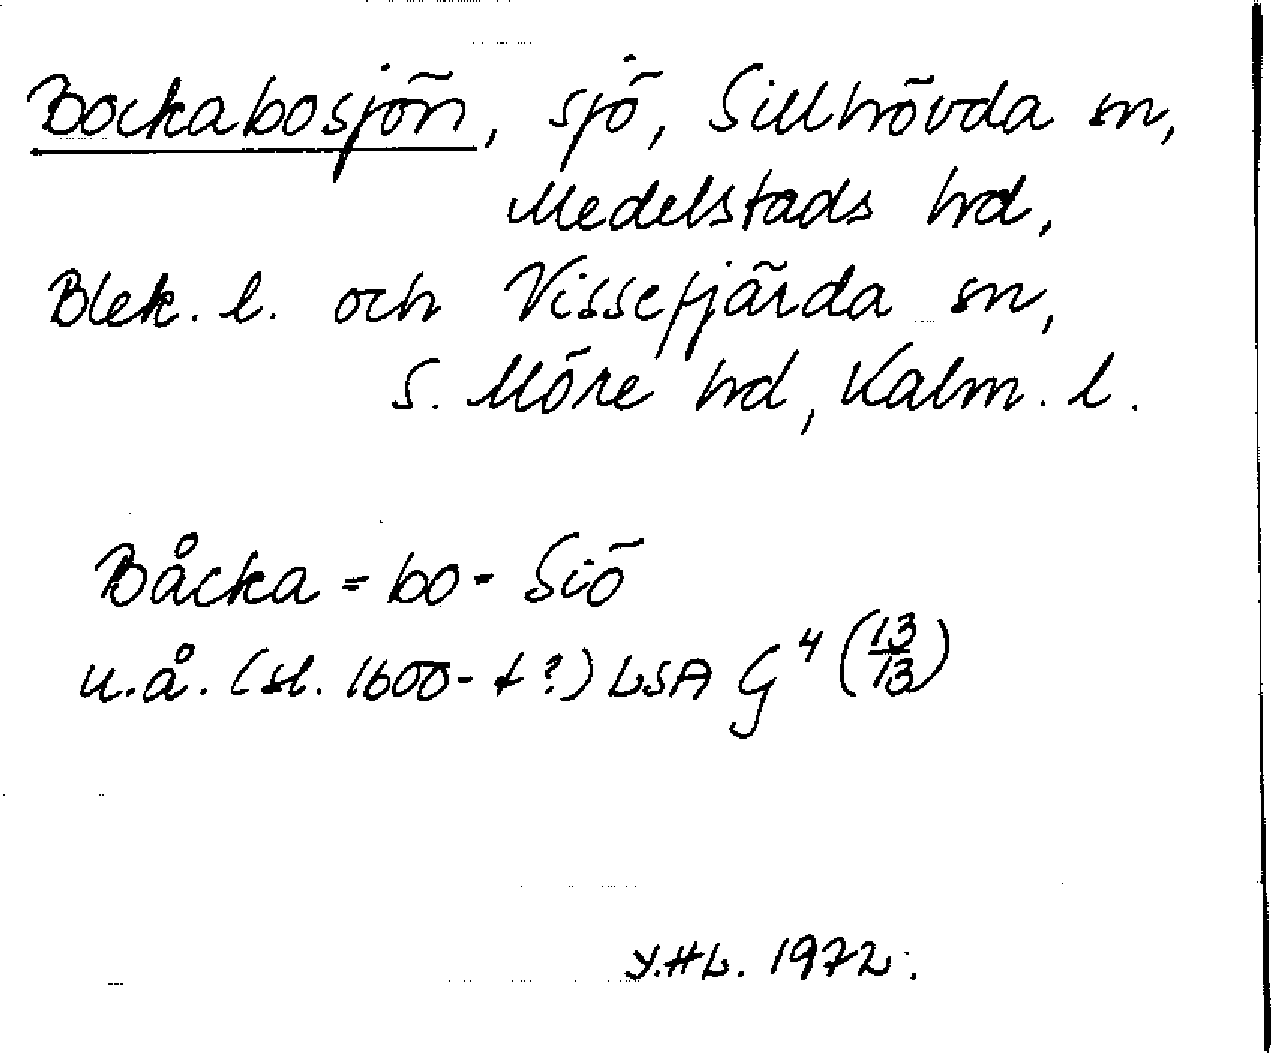 Bockabosjön, sjö, Sillhövda sn,
Medelstads hd,
Blek. l. och Vissefjärda sn,
S. Möre hd, Kalm. l.
Båcka=bo-Siö
u.å. (sl. 1600-t?) LSA G⁴ (13/13)
Y.HL. 1972.